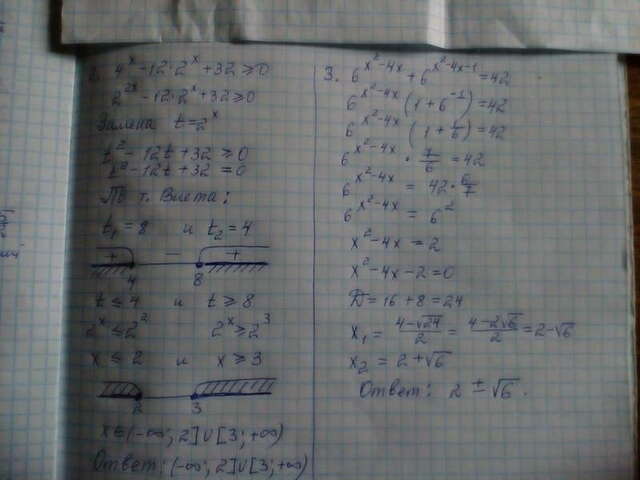 4^x - 12·2^x + 32 ≥ 0
2^{2x} - 12·2^x + 32 ≥ 0
Замена t = 2^x
t^2 - 12t + 32 ≥ 0
t^2 - 12t + 32 = 0
По т. Виета:
t_1 = 8 и t_2 = 4
+ − +
4 8
t ≤ 4 и t ≥ 8
2^x ≤ 2^2 2^x ≥ 2^3
x ≤ 2 и x ≥ 3
2 3
x ∈ (-∞; 2] ∪ [3; +∞)
Ответ: (-∞; 2] ∪ [3; +∞)
3. 6^{x^2-4x} + 6^{x^2-4x-1} = 42
6^{x^2-4x} (1 + 6^{-1}) = 42
6^{x^2-4x} (1 + 1/6) = 42
6^{x^2-4x} · 7/6 = 42
6^{x^2-4x} = 42 · 6/7
6^{x^2-4x} = 6^2
x^2 - 4x = 2
x^2 - 4x - 2 = 0
Д = 16 + 8 = 24
x_1 = (4 - √24)/2 = (4 - 2√6)/2 = 2 - √6
x_2 = 2 + √6
Ответ: 2 ± √6.